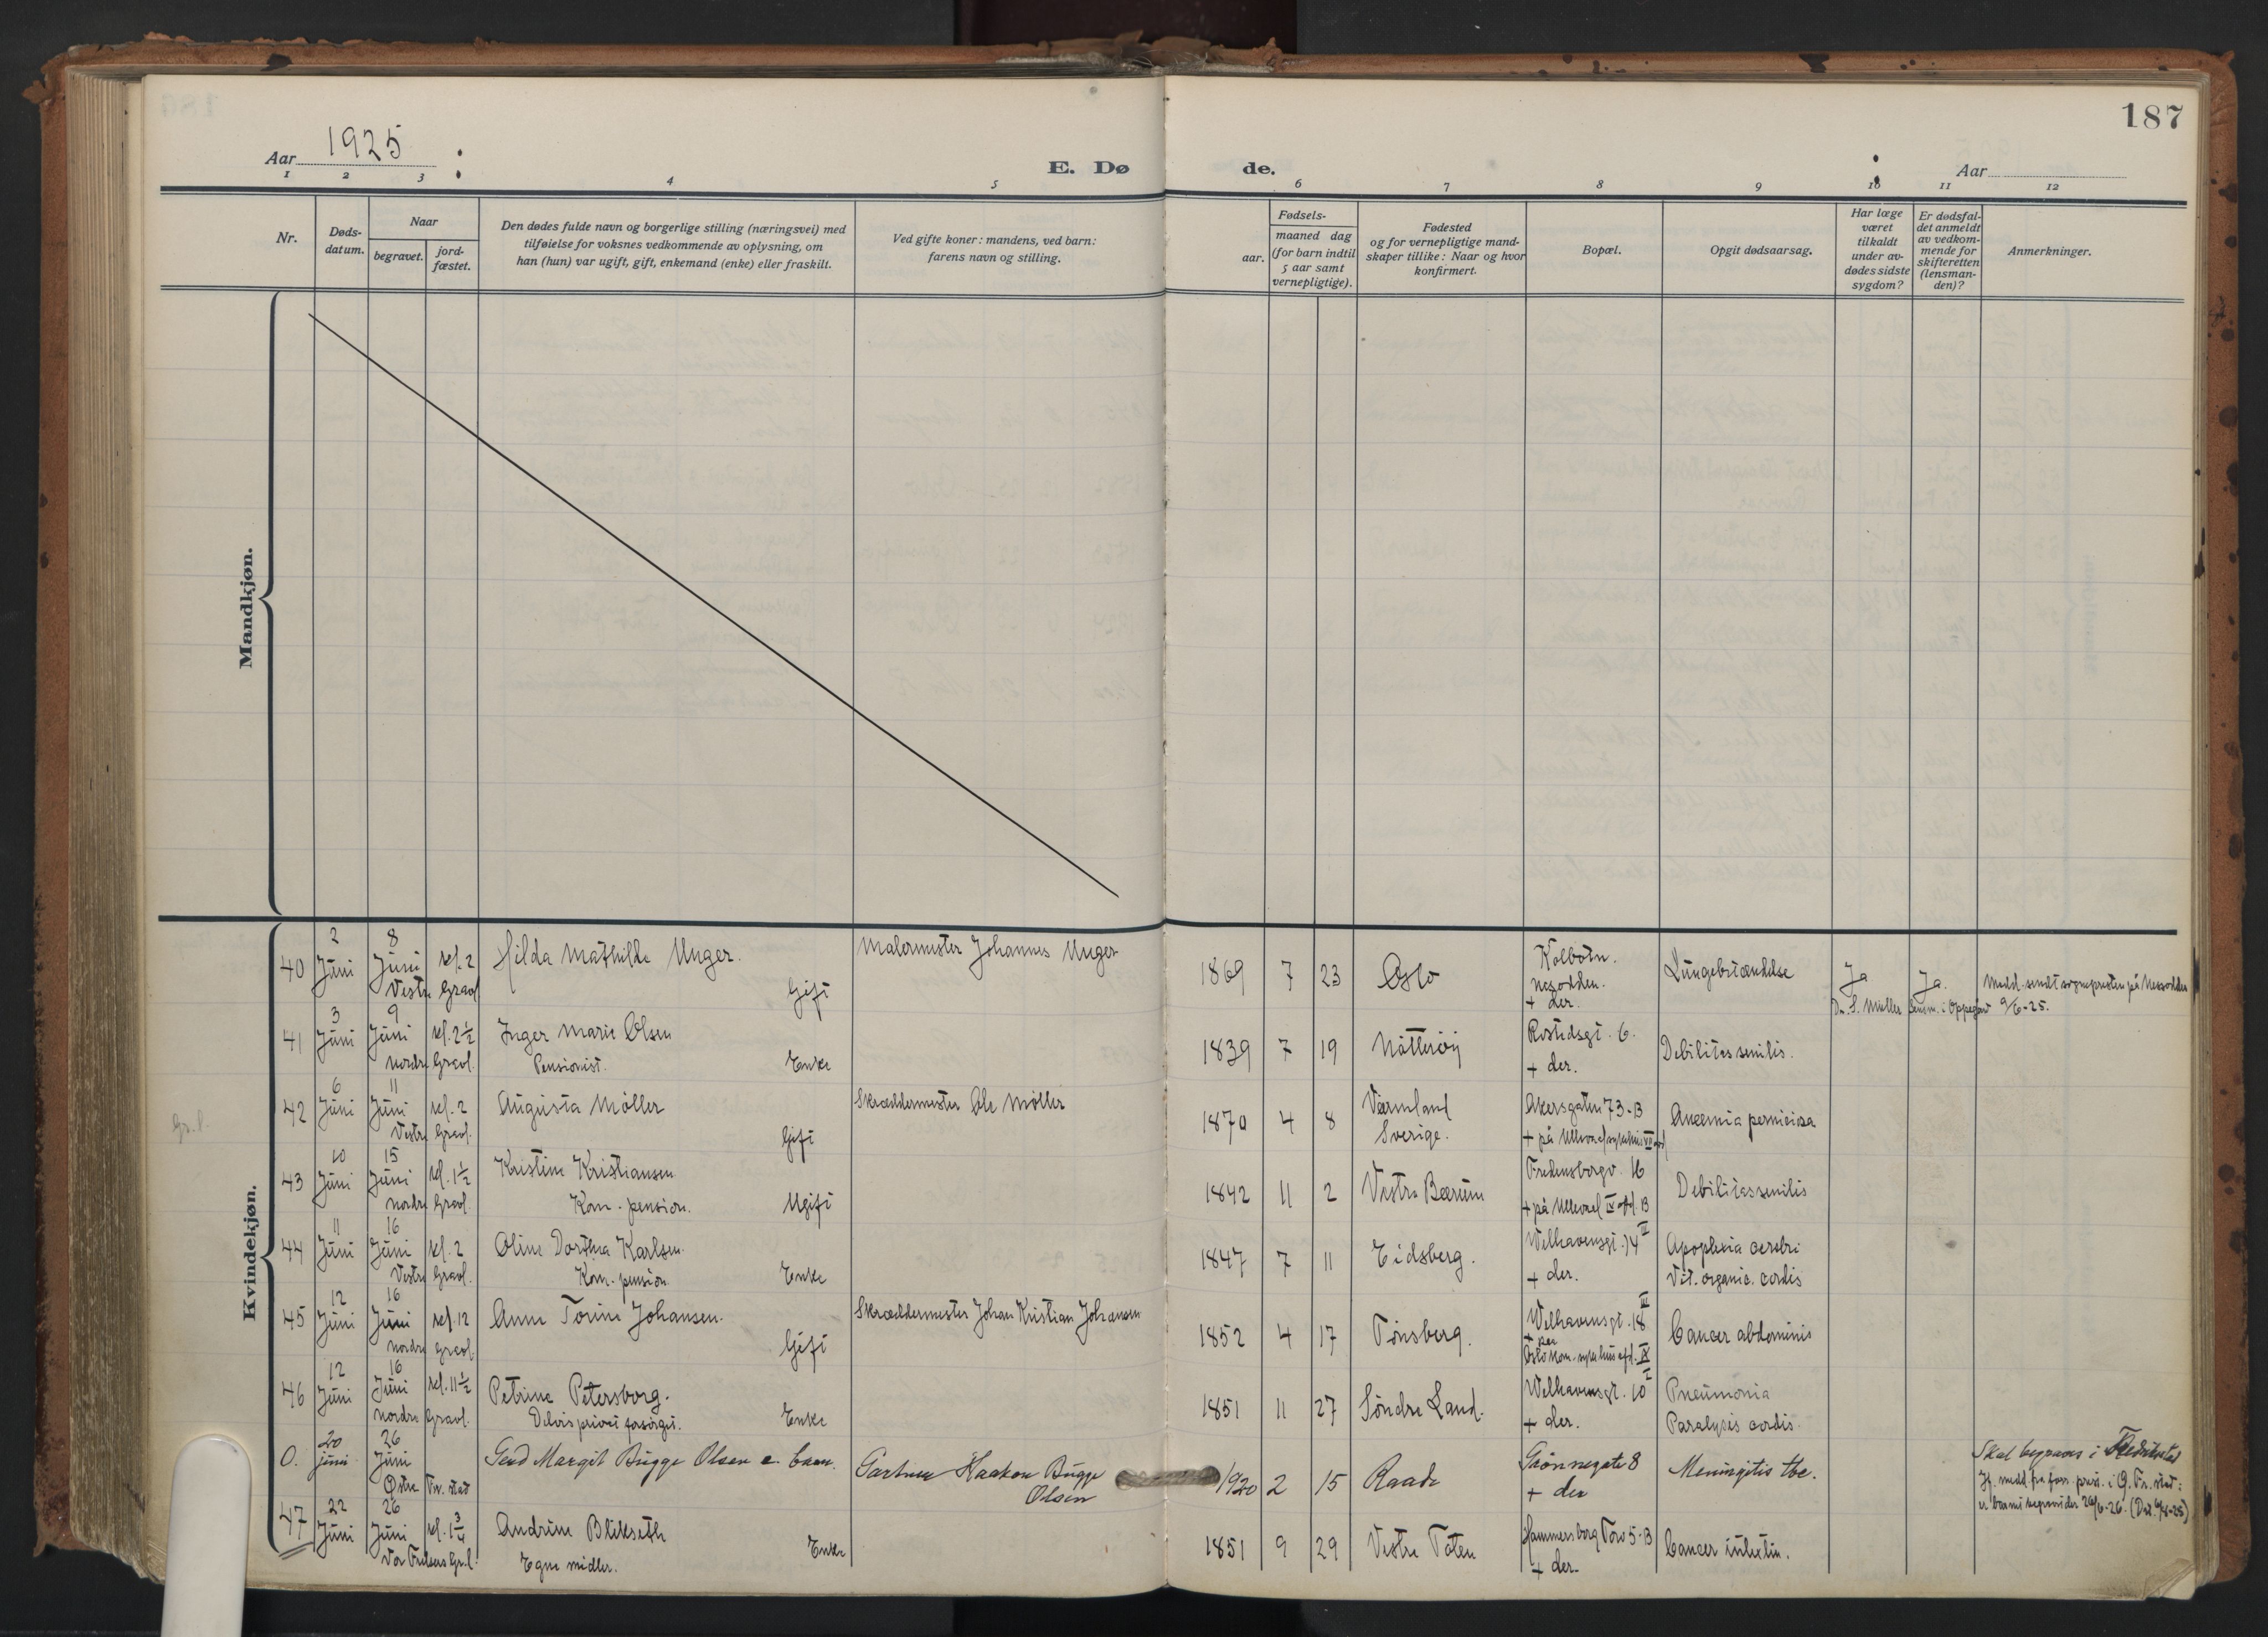 187
Aar 1925
E. Dø de.
Aar
1 2 3 4 5 6 7 8 9 10 11 12
Nr.
Døds-
datum.
Naar
begravet.
jord-
fæstet.
Den dødes fulde navn og borgerlige stilling (næringsvei) med
tilføielse for voksnes vedkommende av oplysning, om
han (hun) var ugift, gift, enkemand (enke) eller fraskilt.
Ved gifte koner: mandens, ved barn:
farens navn og stilling.
aar.
Fødsels-
maaned dag
(for barn indtil
5 aar samt
vernepligtige).
Fødested
og for vernepligtige mand-
skaper tillike: Naar og hvor
konfirmert.
Bopæl.
Opgit dødsaarsag.
Har læge
været
tilkaldt
under av-
dødes sidste
sygdom?
Er dødsfal-
det anmeldt
av vedkom-
mende for
skifteretten
(lensman-
den)?
Anmerkninger.
Mandkjøn.
Kvindekjøn.
2 8
40 Juni Juni kl. 2 Hilda Mathilde Unger. Malermester Johannes Unger 1869 7 23 Oslo Kolbotn. Lungebetændelse Ja Ja. Medd. sendt sognepresten på Nesodden
Vestre Gravl. Gift Nesodden.
+ der. Dr. S. Møller Lensm. i Oppegård 9/6-25.
3 9
41 Juni Juni kl. 2½ Inger Marie Olsen 1839 7 19 Nøtterøy Rostedsgt. 6. Debilitas senilis.
Nordre Gravl. Pensionist. Enke + der.
6 11
42 Juni Juni kl. 2 Augusta Møller Skræddermester Ole Møller 1870 4 8 Værmland Akersgaten 73-B Anæmia perniciosa
Gr. l. Vestre Gravl. Gift Sverige. + på Ullevaal sykehus VII afd
10 15
43 Juni Juni kl. 1½ Kristine Kristiansen 1842 11 2 Vestre Bærum Fredensborgv. 16 Debilitas senilis
Nordre Gravl. Kom. pension. Ugift + på Ullevaal IV afd. B
11 16
44 Juni Juni kl. 2 Oline Dorthea Karlsen. 1847 7 11 Eidsberg. Welhavensgt. 14 II Apoplexia cerebri
Vestre Gravl. Kom. pension Enke + der. Vit. organic. cordis
12 16
45 Juni Juni kl. 12 Anne Torine Johansen. Skræddermester Johan Kristian Johansen 1852 4 17 Tønsberg. Welhavensgt. 18 III Cancer abdominis
Nordre Gravl. Gift + paa
Oslo kom. sykehus afd. IX
12 16
46 Juni Juni kl. 11½ Petrine Petersborg. 1851 11 27 Søndre Land. Welhavensgt. 10 I Pneumonia
Nordre Gravl. Delvis privat forsørget. Enke + der. Paralysis cordis.
20 26
0. juni Juni Gerd Margit Bugge Olsen e. barn. Gartner Haakon Bugge 1920 2 15 Raade Grønnegate 8 Meningitis tbc. Skal begraves i Fredrikstad
Østre Fr. stad Olsen + der
er barnet begravet der 26/6-26.
22 26
47 Juni Juni kl. 1¾ Andrine Blikseth 1851 9 29 Vestre Toten Hammersborg Torv 5-B Cancer intestin.
Vor Frelsers Gr.l. Egne midler. Enke + der.